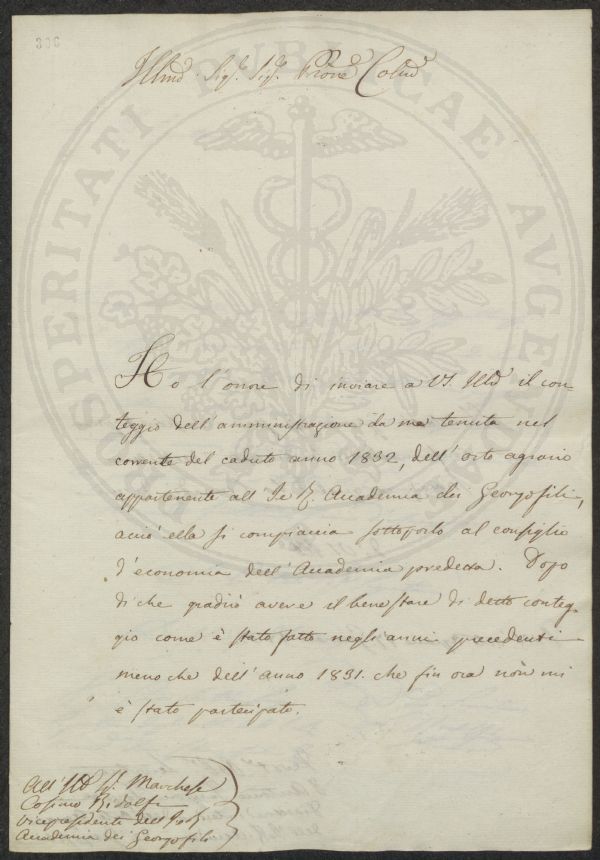 Illmo. Sigr. Sigr. Prone Colmo
Ho l'onore di inviare a VS. Illma il con
teggio dell'amministrazione da me tenuta nel
corrente del caduto anno 1832, dell'orto agrario
appartenente all' I e R. Academia dei Georgofili,
acciò ella si compiaccia sottoporlo al consiglio
d'economia dell'Accademia predetta. Dopo
di che gradirò avere il bene stare di detto conteg
gio come è stato fatto negli anni precedenti
meno che dell'anno 1831. che fin ora non mi
è stato partecipato.
All'Illmo Sr. Marchese
Cosimo Ridolfi
Vicepresidente dell'I e R
Academia dei Georgofili
PROSPERITATI PUBLICAE AUGENDAE